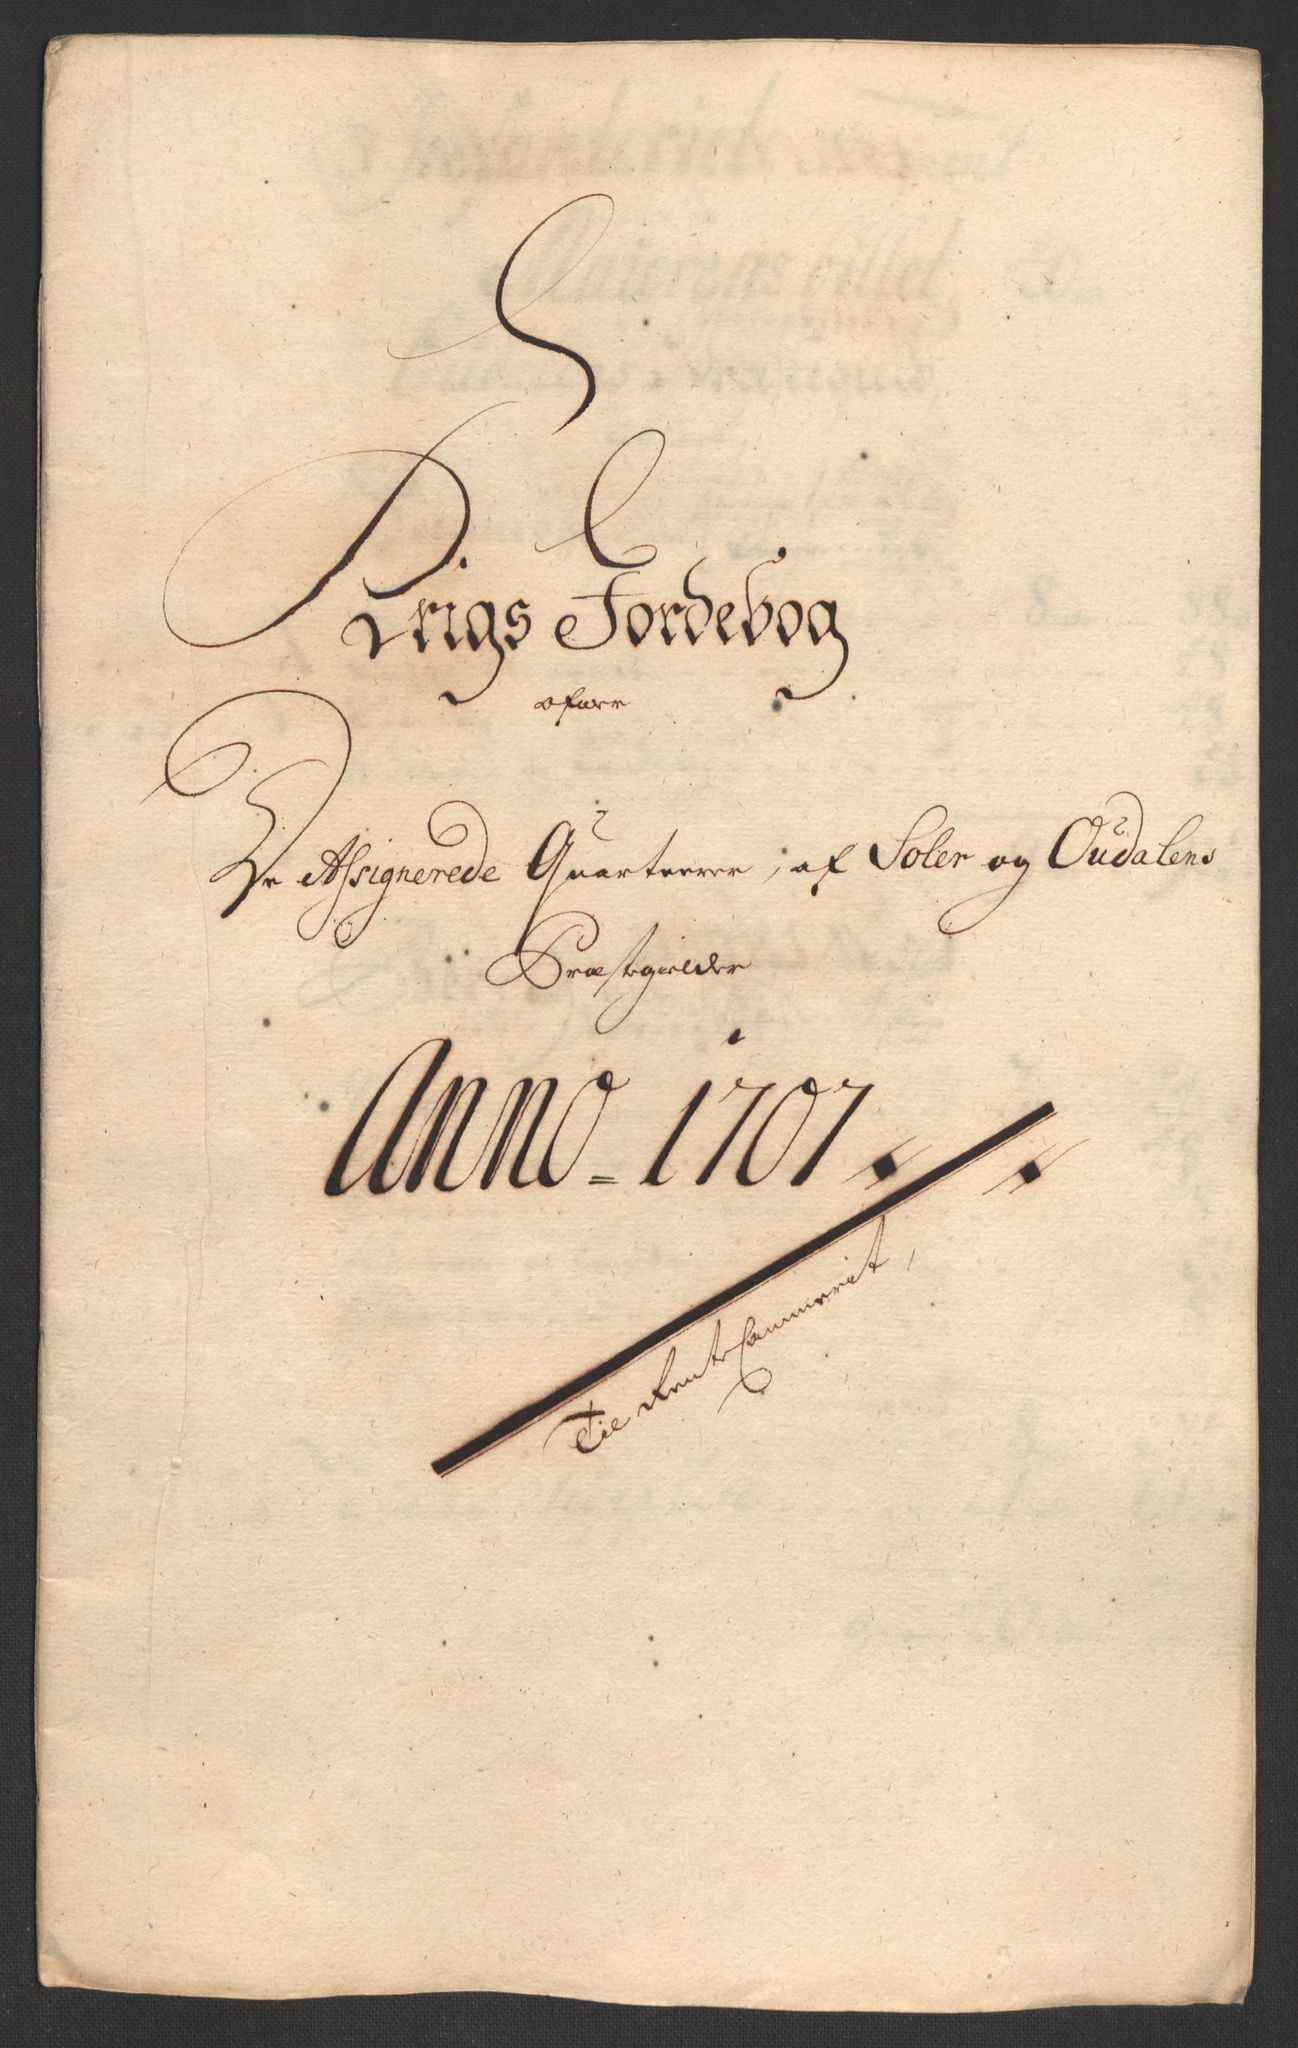 Krigs Jordebog
ofver
De Assignerede Quarteerer, af Soler og Oudalens
Præstegielder
Anno = 1707.
Til Rente Cammerit,